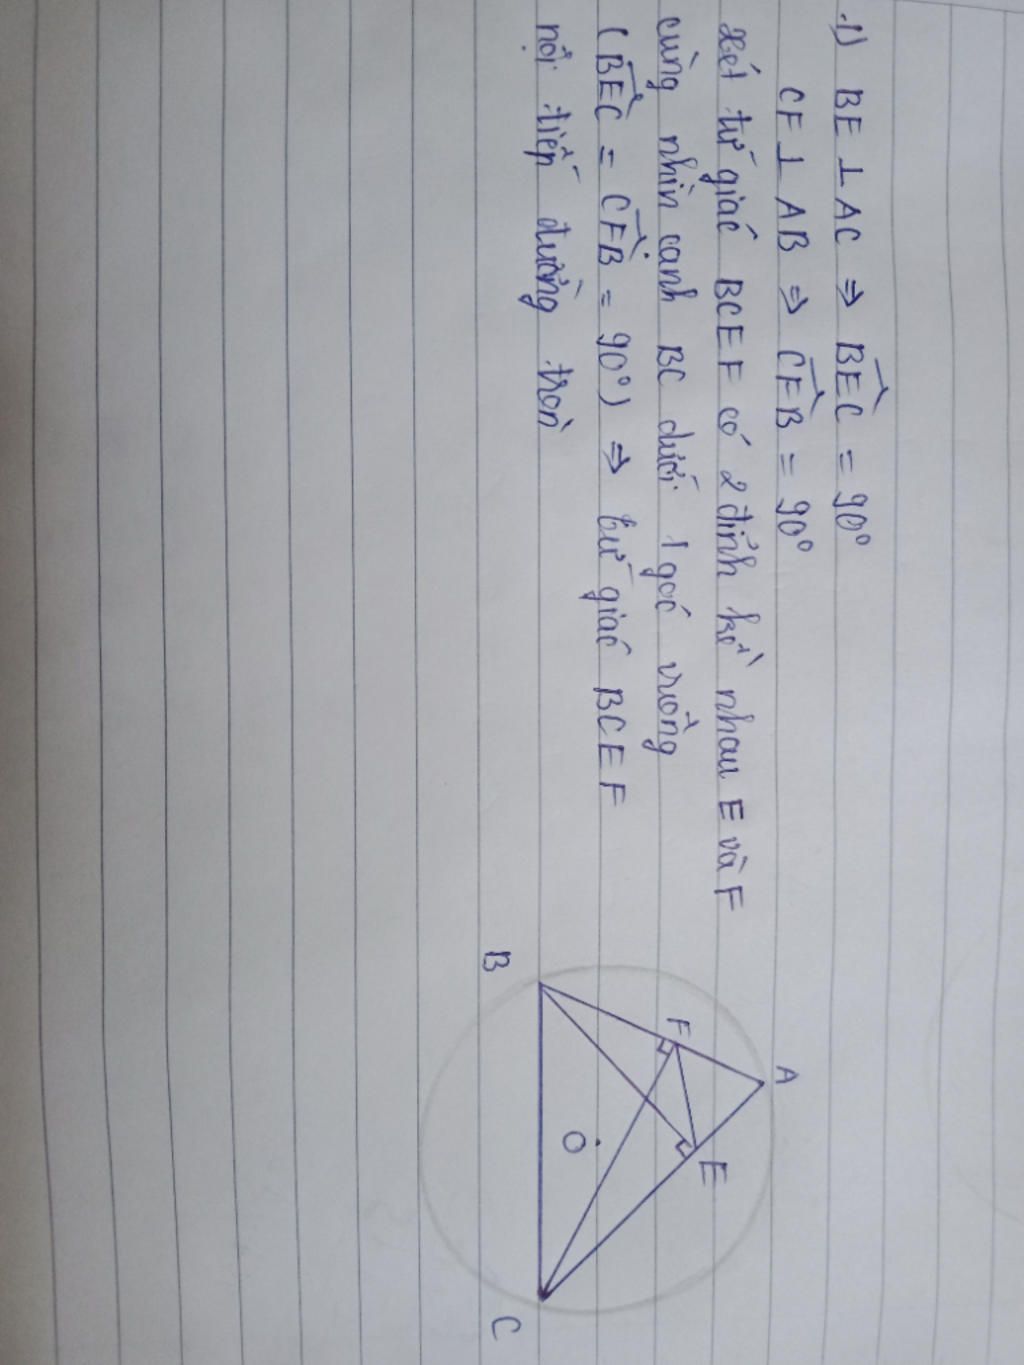 1) BE ⊥ AC ⇒ BEC = 90°
CF ⊥ AB ⇒ CFB = 90°
Xét tứ giác BCEF có 2 đỉnh kề nhau E và F
cùng nhìn cạnh BC dưới 1 góc vuông
(BEC = CFB = 90°) ⇒ tứ giác BCEF
nội tiếp đường tròn
A
F
E
B
O
C